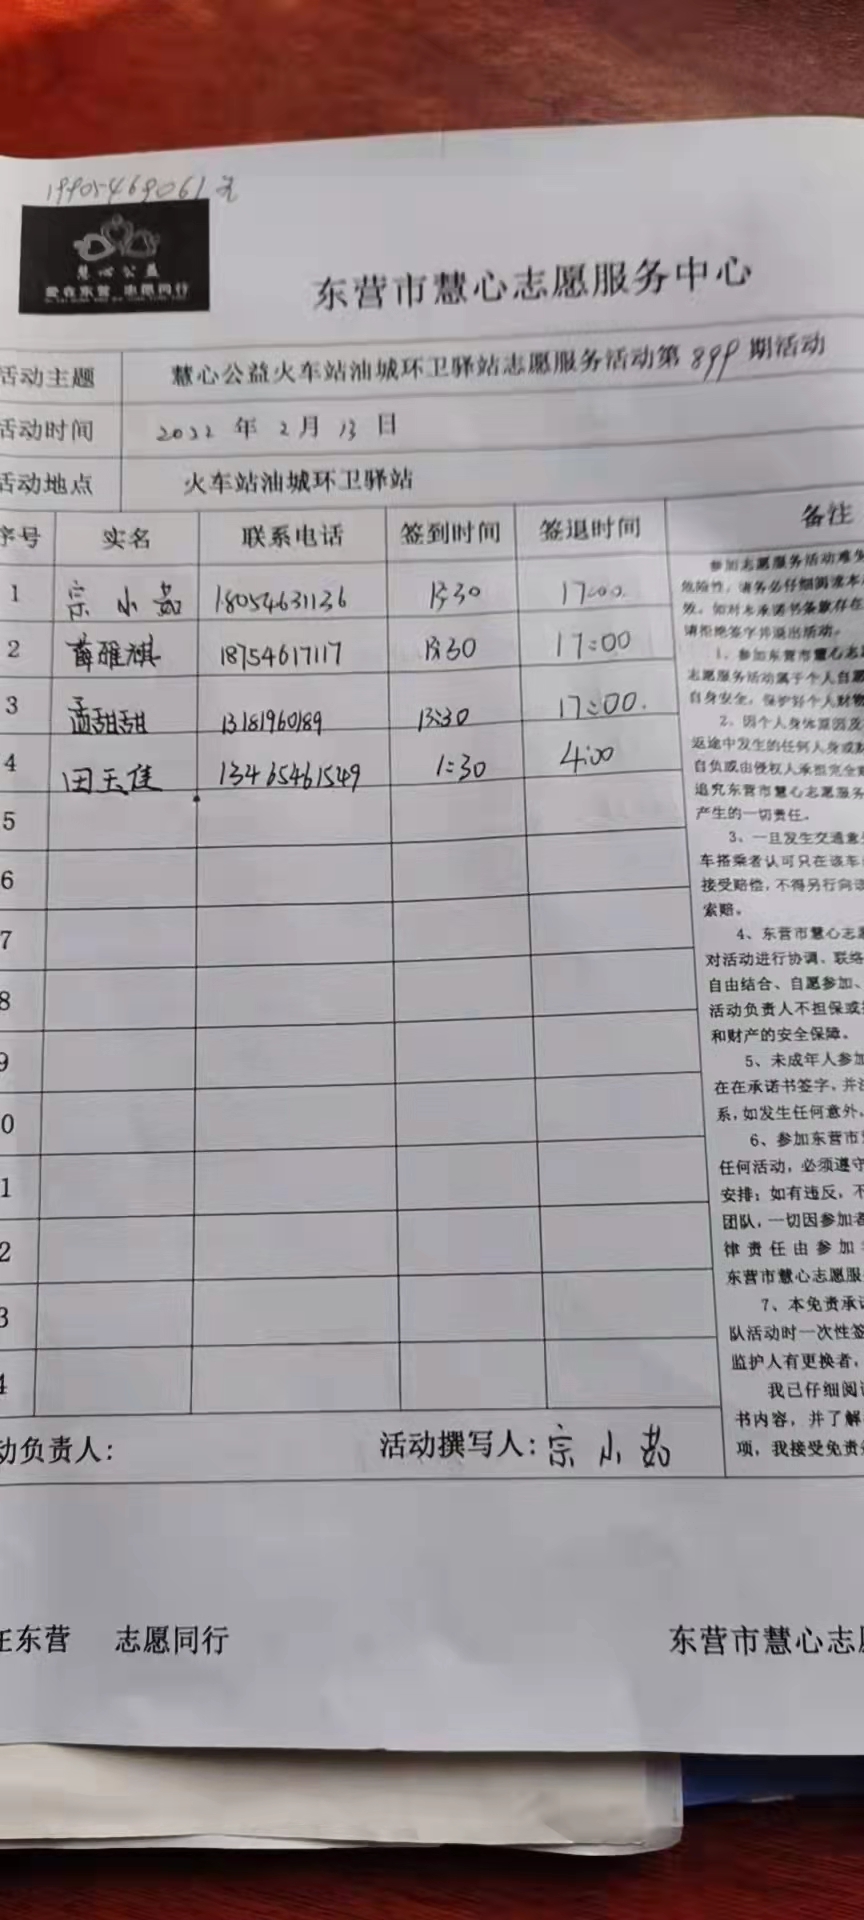 19905469061
慧心公益
爱在东营 志愿同行
东营市慧心志愿服务中心
活动主题 慧心公益火车站油城环卫驿站志愿服务活动第899期活动
活动时间 2022年2月13日
活动地点 火车站油城环卫驿站
序号 实名 联系电话 签到时间 签退时间 备注
1 宗小茹 18054631136 13:30 17:00
2 薛雅祺 18754617117 13:30 17:00
3 孟甜甜 13181960189 13:30 17:00.
4 田玉佳 13465461549 1:30 4:00
5
6
7
8
9
0
1
2
3
4
参加志愿服务活动难免
危险性,请务必仔细阅读本
效,如对本承诺书条款存在
请拒绝签字并退出活动。
1、参加东营市慧心志愿
志愿服务活动属于个人自愿
自身安全,保护好个人财物
2、因个人身体原因及
返途中发生的任何人身或财
自负或由侵权人承担完全
追究东营市慧心志愿服务
产生的一切责任。
3、一旦发生交通意外
车搭乘者认可只在该车
接受赔偿,不得另行向该
索赔。
4、东营市慧心志愿
对活动进行协调、联络
自由结合、自愿参加、
活动负责人不担保或
和财产的安全保障。
5、未成年人参加
在在承诺书签字,并
系,如发生任何意外,
6、参加东营市
任何活动,必须遵守
安排;如有违反,不
团队,一切因参加者
律责任由参加
东营市慧心志愿服
7、本免责承诺
队活动时一次性签
监护人有更换者,
我已仔细阅读
书内容,并了解
项,我接受免责
动负责人: 活动撰写人:宗小茹
在东营 志愿同行 东营市慧心志愿